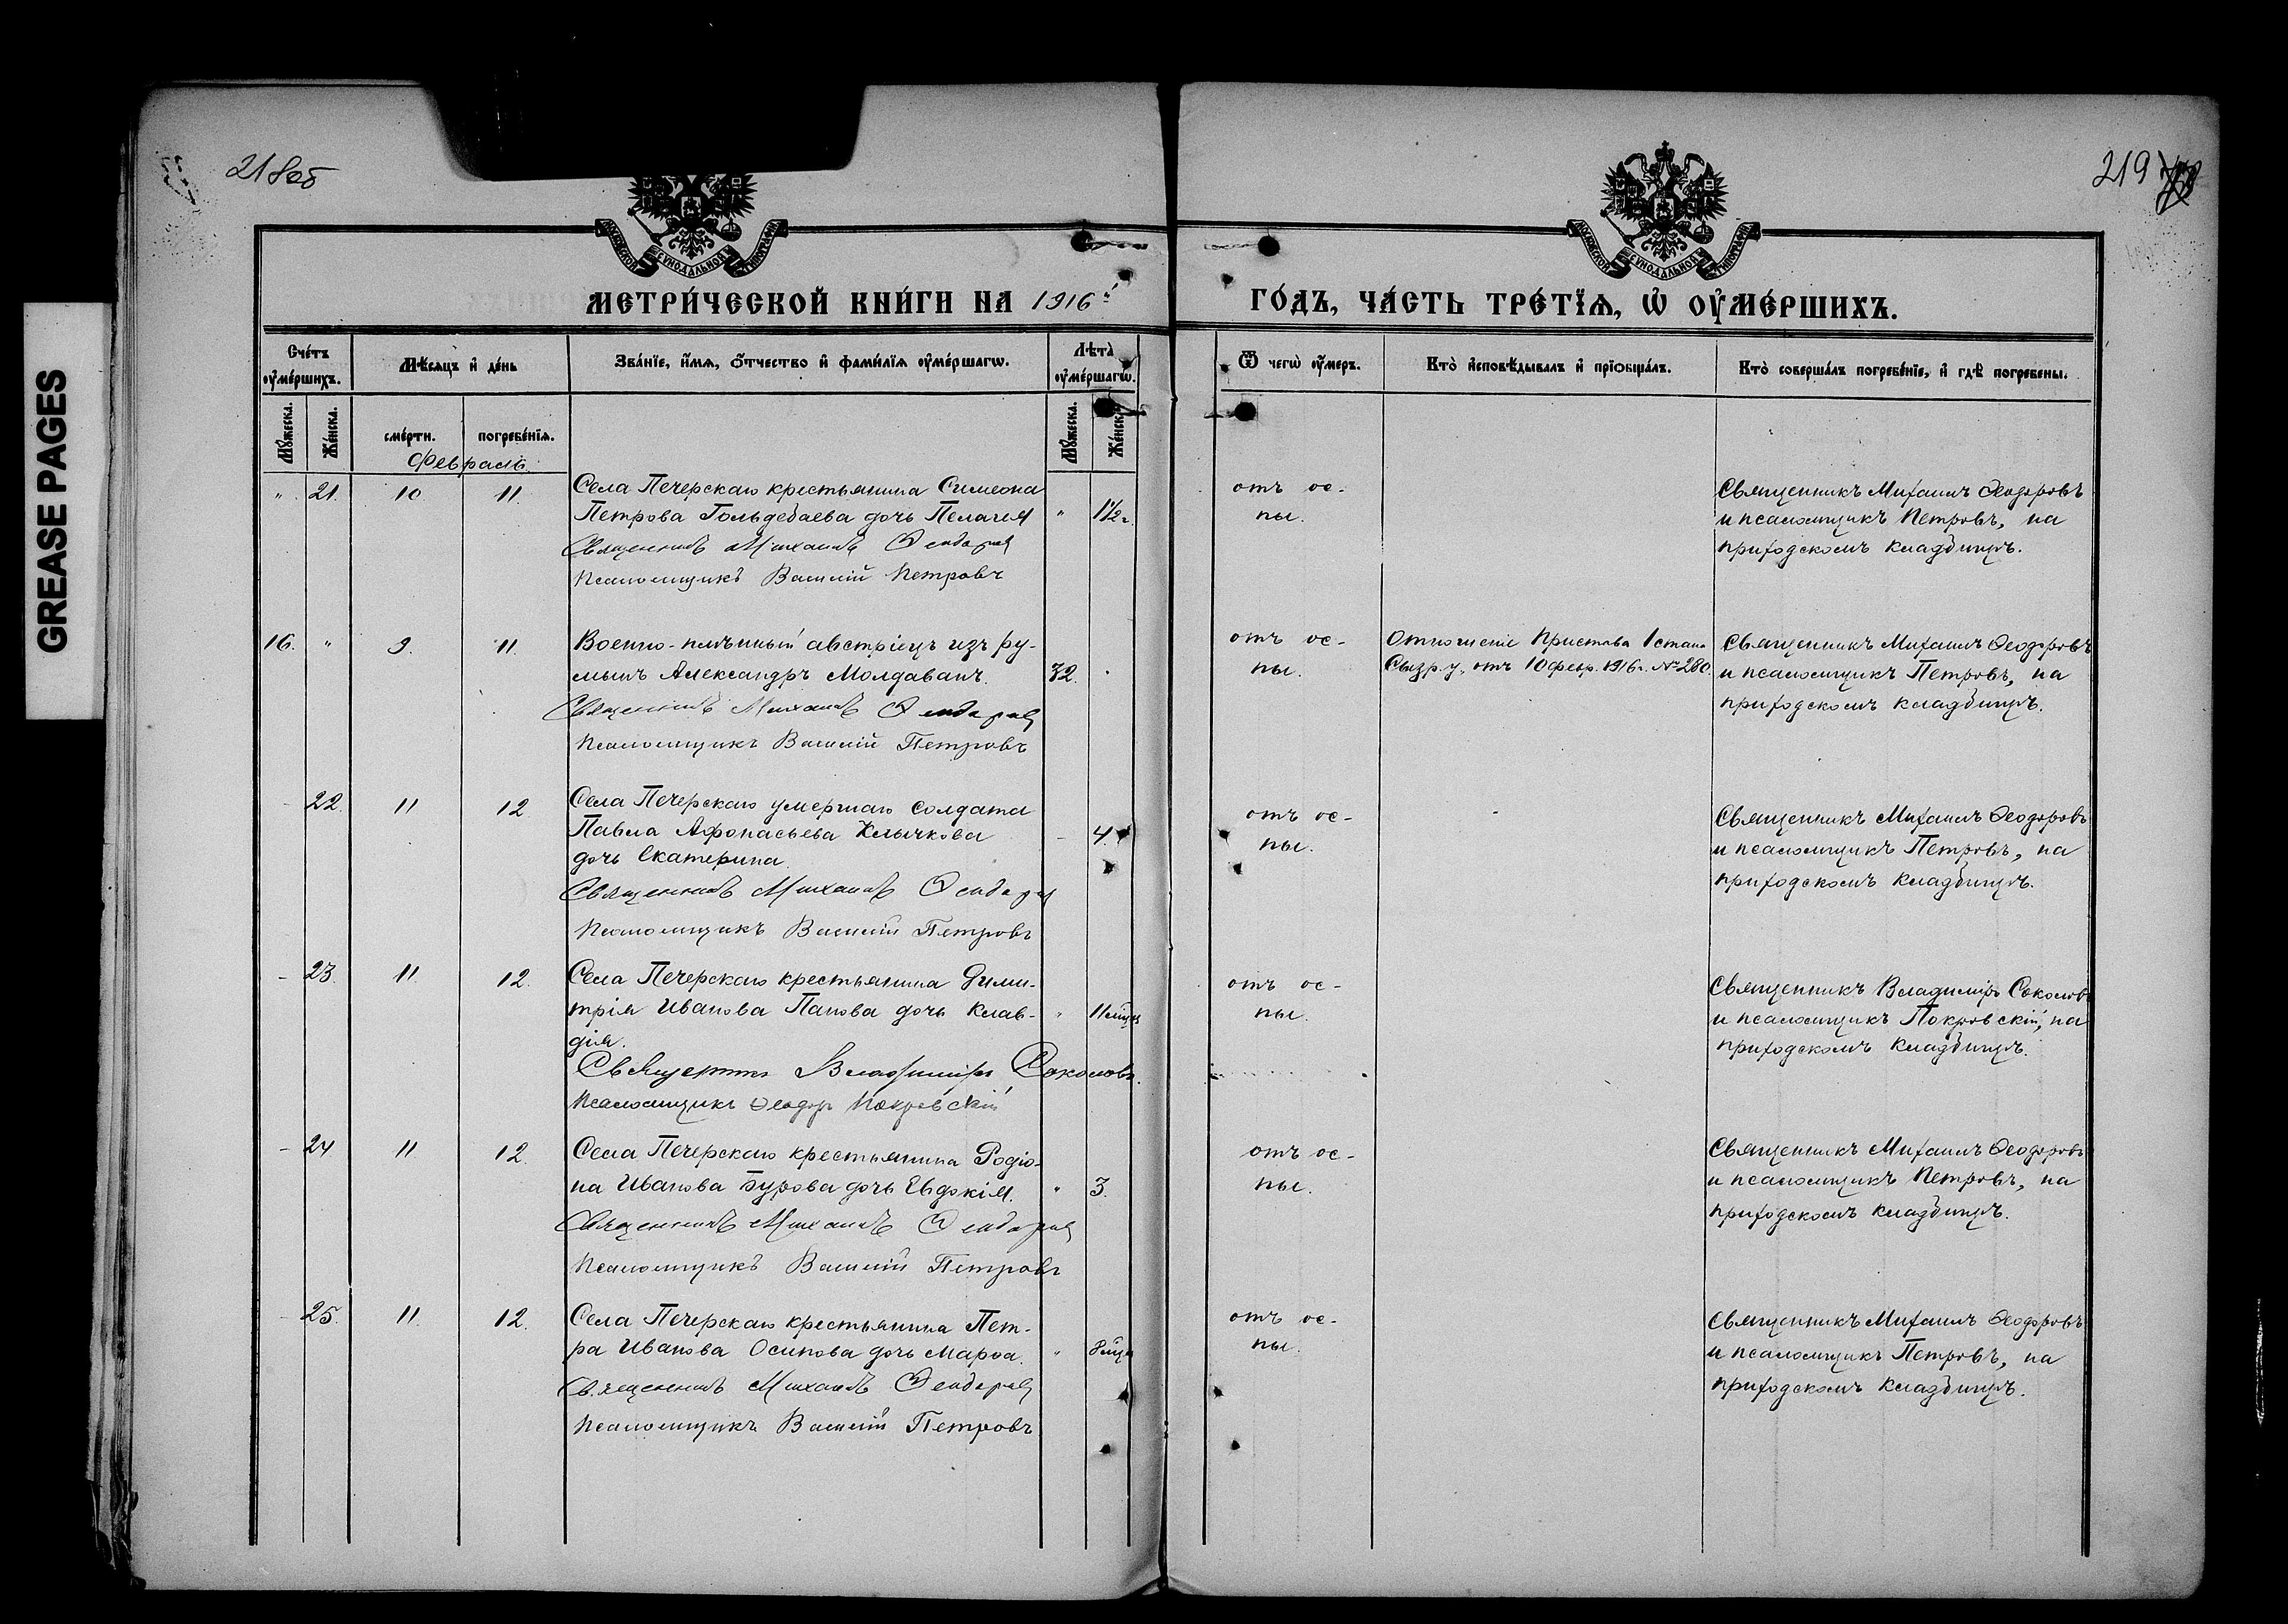 GREASE PAGES
218об
219
МОСКОВСКОЙ СѴНОДАЛЬНОЙ ТИПОГРАФІИ
МОСКОВСКОЙ СѴНОДАЛЬНОЙ ТИПОГРАФІИ
МЕТРИ́ЧЕСКОЙ КНИ́ГИ НА 1916й
ГО́ДЪ, ЧА́СТЬ ТРЕ́ТЇѦ, Ѡ҆ ОУ҆МЕ́РШИХЪ.
Сче́тъ оу҆ме́ршихъ.
Мѣ́сѧцъ и҆ де́нь
Зва́нїе, и҆́мѧ, ѻ҆́тчество и҆ фами́лїѧ оу҆ме́ршагѡ.
Лѣ́та оу҆ме́ршагѡ.
Ѿ чегѡ̀ оу҆́меръ.
Кто̀ и҆сповѣ́дывалъ и҆ прїѻбща́лъ.
Кто̀ соверша́лъ погребе́нїе, и҆ гдѣ̀ погребены.
Мꙋ́жеска.
Же́нска.
сме́рти.
погребе́нїѧ.
Мꙋ́жеска.
Же́нска.
Февраль.
" 21. 10 11
Села Печерскаго крестьянина Симеона
Петрова Гольдебаева дочь Пелагея " 1½ г.
Священникъ Михаилъ Феодоровъ
Псаломщикъ Василій Петровъ
отъ ос-
пы.
Священникъ Михаилъ Ѳеодоровъ
и псаломщикъ Петровъ, на
приходскомъ кладбищѣ.
16. " 9. 11.
Военно-плѣнный австріецъ изъ ру-
мынъ Александръ Молдаванъ. 32.
Священникъ Михаилъ Феодоровъ
Псаломщикъ Василій Петровъ
отъ ос-
пы.
Отношеніе Пристава 1 стана
Сызр. у. отъ 10 февр. 1916 г. № 260.
Священникъ Михаилъ Ѳеодоровъ
и псаломщикъ Петровъ, на
приходскомъ кладбищѣ.
- 22. 11 12
Села Печерскаго умершаго солдата
Павла Афонасьева Клычкова - 4.
дочь Екатерина.
Священникъ Михаилъ Феодоровъ
Псаломщикъ Василій Петровъ
отъ ос-
пы.
Священникъ Михаилъ Ѳеодоровъ
и псаломщикъ Петровъ, на
приходскомъ кладбищѣ.
- 23. 11. 12.
Села Печерскаго крестьянина Дими-
трія Иванова Панова дочь Клав- "
дія.
Священникъ Владиміръ Соколовъ.
Псаломщикъ Ѳеодоръ Покровскій
отъ ос-
пы.
Священникъ Владиміръ Соколовъ
и псаломщикъ Покровскій, на
приходскомъ кладбищѣ.
- 24 11 12.
Села Печерскаго крестьянина Родіо-
на Иванова Бурова дочь Евдокія. " 3.
Священникъ Михаилъ Феодоровъ
Псаломщикъ Василій Петровъ
отъ ос-
пы.
Священникъ Михаилъ Ѳеодоровъ
и псаломщикъ Петровъ, на
приходскомъ кладбищѣ.
- 25. 11. 12.
Села Печерскаго крестьянина Пет-
ра Иванова Осипова дочь Марѳа. "
Священникъ Михаилъ Феодоровъ
Псаломщикъ Василій Петровъ
отъ ос-
пы.
Священникъ Михаилъ Ѳеодоровъ
и псаломщикъ Петровъ, на
приходскомъ кладбищѣ.